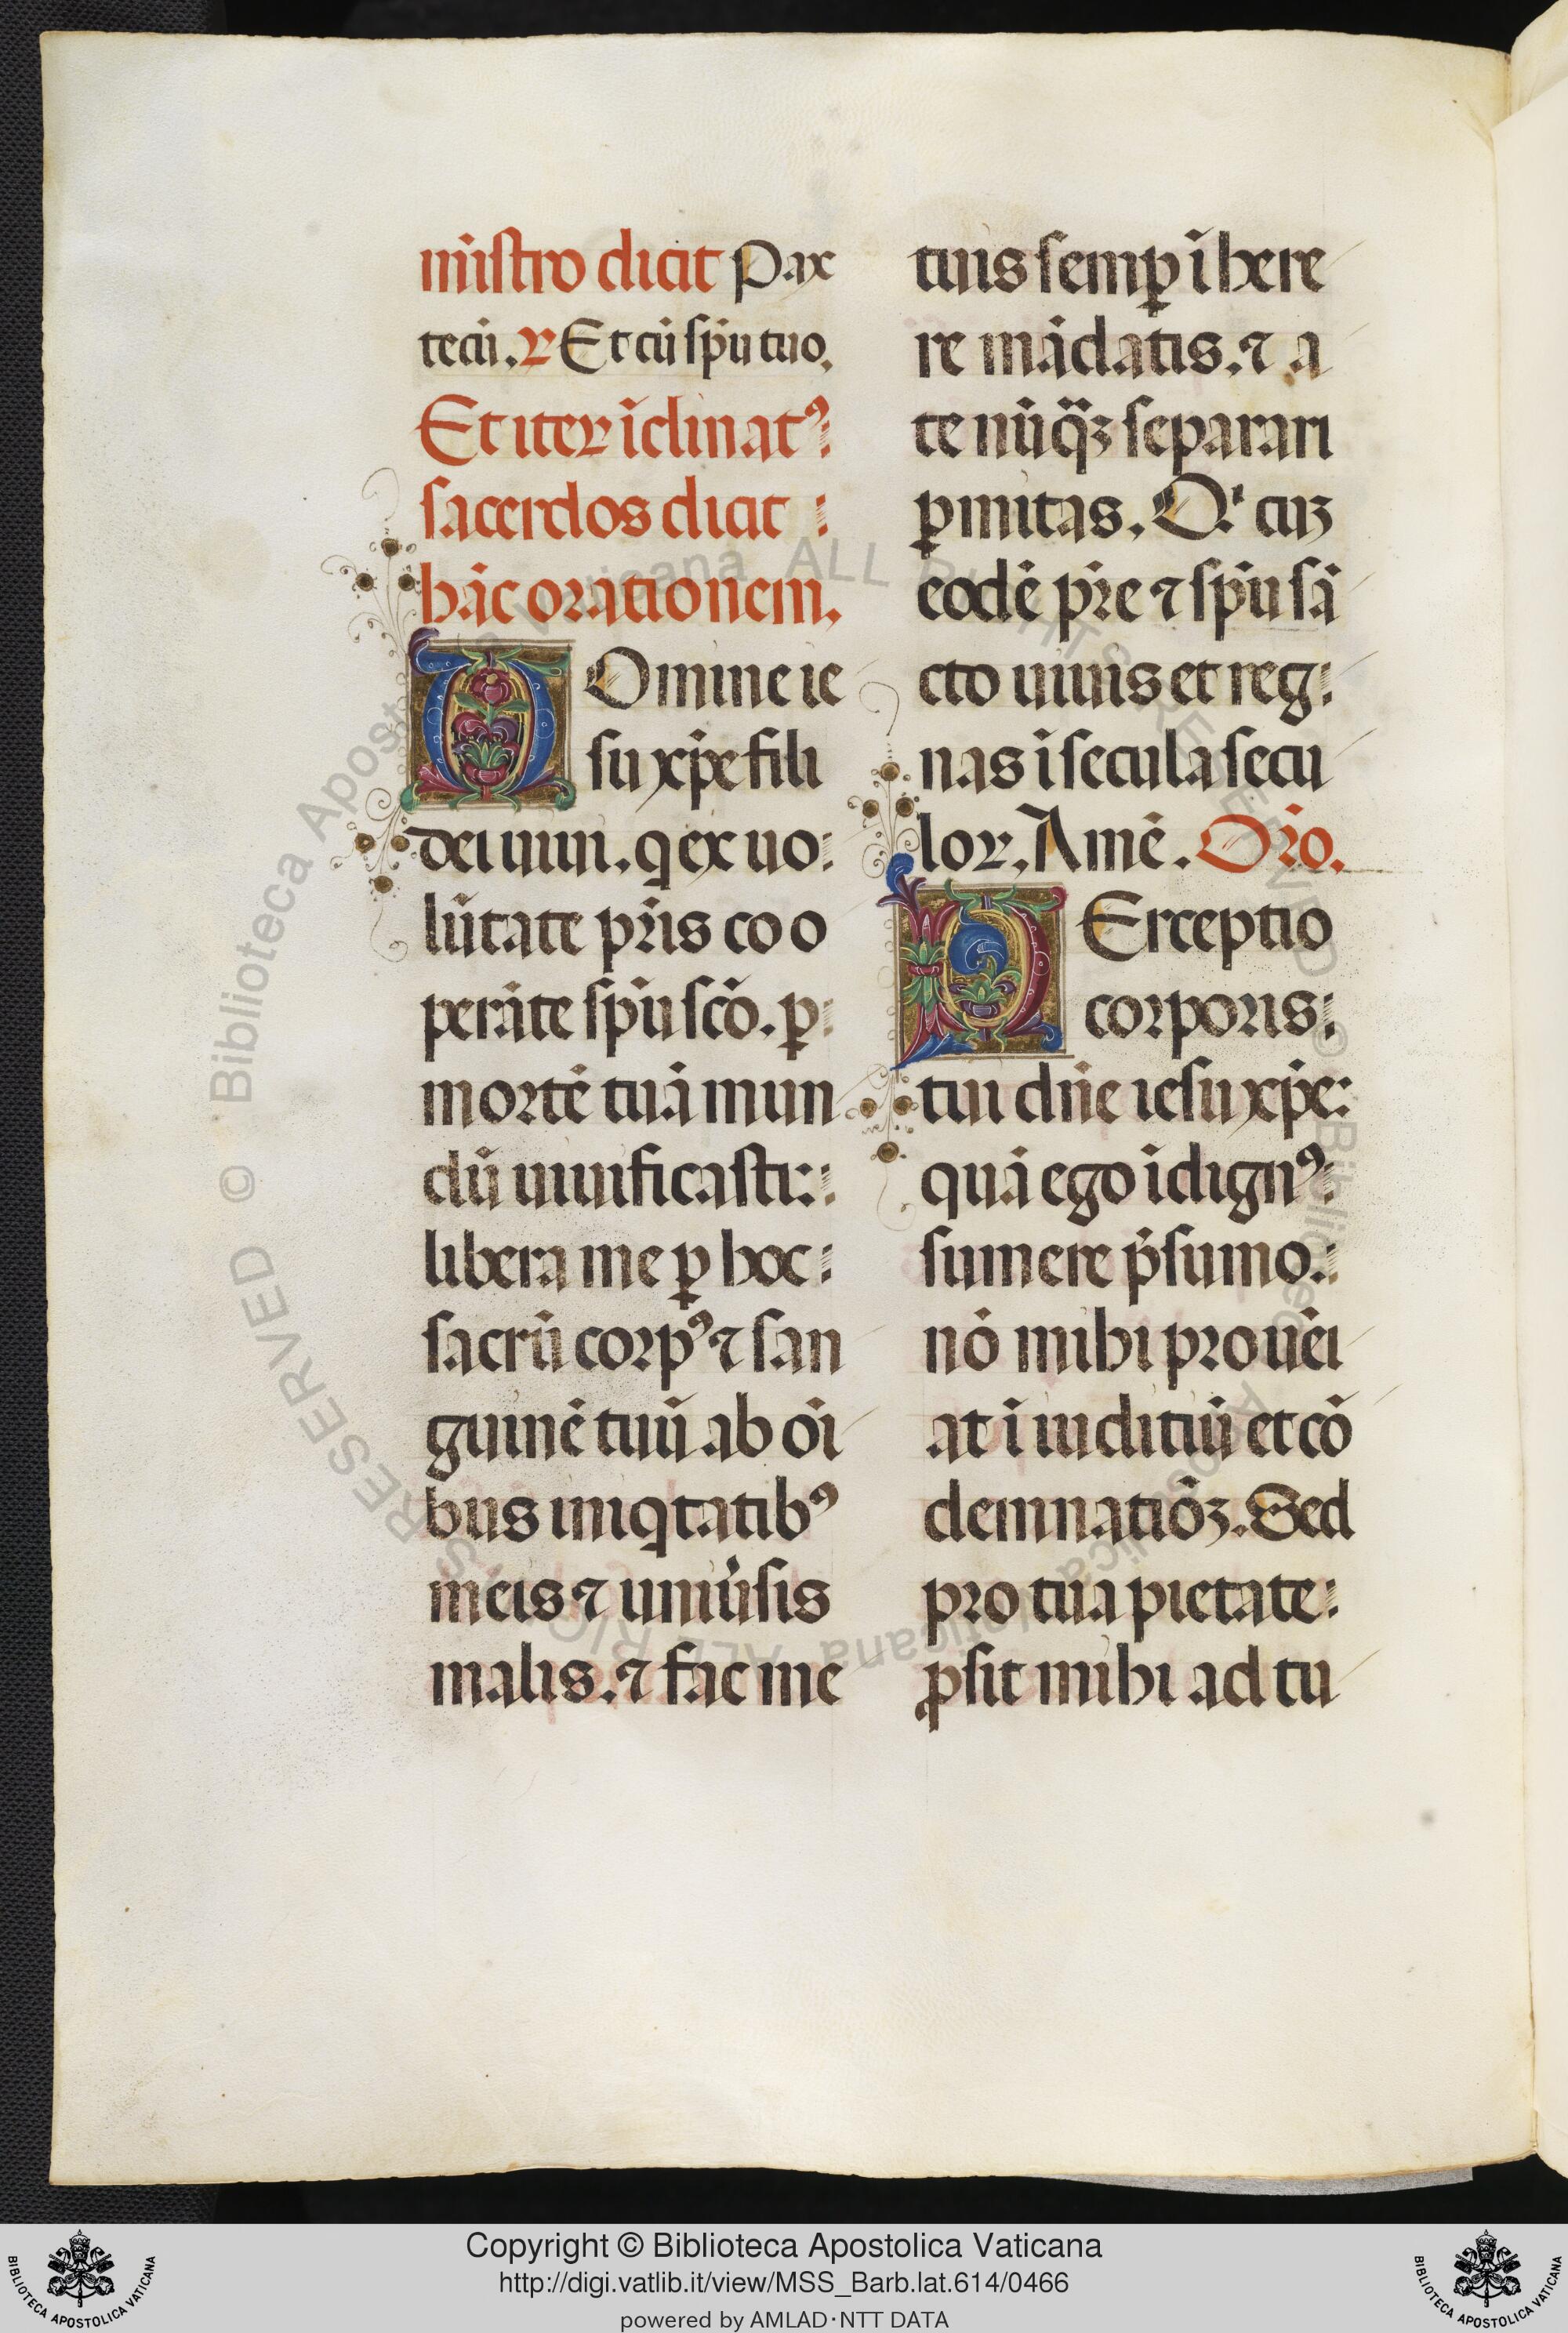 mīstro dicit Pax
tecū. ℟ Et cū sp̄u tuo.
Et iteꝝ īclinatꝰ
sacerdos dicit
hāc orationem.
DOmine ie
su xp̄e fili
dei uiui. q̇ ex uo
lūtate pr̄is coo
perāte sp̄u sc̄o. ꝑ
mortē tuā mun
dū uiuificasti:
libera me ꝑ hoc
sacrū corpꝰ ⁊ san
guinē tuū ab oī
bus iniq̇tatibꝰ
meis ⁊ uniu̾sis
malis. ⁊ fac me
tuis semꝑ īhere
re mādatis. ⁊ a
te nūq̄ꝫ separari
ꝑmitas. Qͥ cuꝫ
eodē pr̄e ⁊ sp̄u sā
cto uiuis et reg
nas ī secula secu
loꝝ. Amē. Or̄o.
PErceptio
corporis
tui dn̄e iesu xp̄e:
quā ego īdignꝰ
sumere p̄sumo.
nō mihi prouēi
at ī iuditiū et cō
demnatiōꝫ. Sed
pro tua pietate
ꝓsit mihi ad tu
© Biblioteca Apostolica Vaticana ALL RIGHTS RESERVED
© Biblioteca Apostolica Vaticana ALL RIGHTS RESERVED
Copyright © Biblioteca Apostolica Vaticana
http://digi.vatlib.it/view/MSS_Barb.lat.614/0466
powered by AMLAD·NTT DATA
BIBLIOTECA APOSTOLICA VATICANA
BIBLIOTECA APOSTOLICA VATICANA